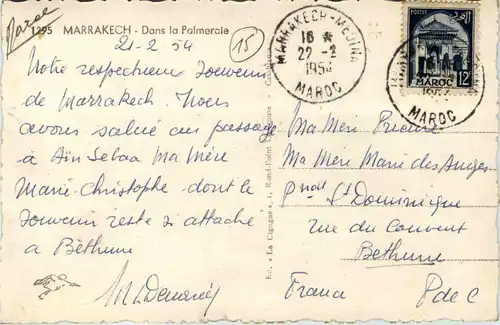 Maroc
1295 MARRAKECH - Dans la Palmeraie
21-2.54
15
Notre respectueux souvenir
de Marrakech. Nous
avons salué au passage
à Aïn Sebaa Ma Mère
Marie-Christophe dont le
souvenir reste si attaché
à Béthune
MARRAKECH-MEDINA
18 *
22 -2
1954
MAROC
POSTES
MAROC
12F
1954
MAROC
Ed. "La Cigogne", 1, Rond-Point
Ma Mère Prieure
Ma Mère Marie des Anges
St Dominique
rue du Couvent
Bethune
France P de C